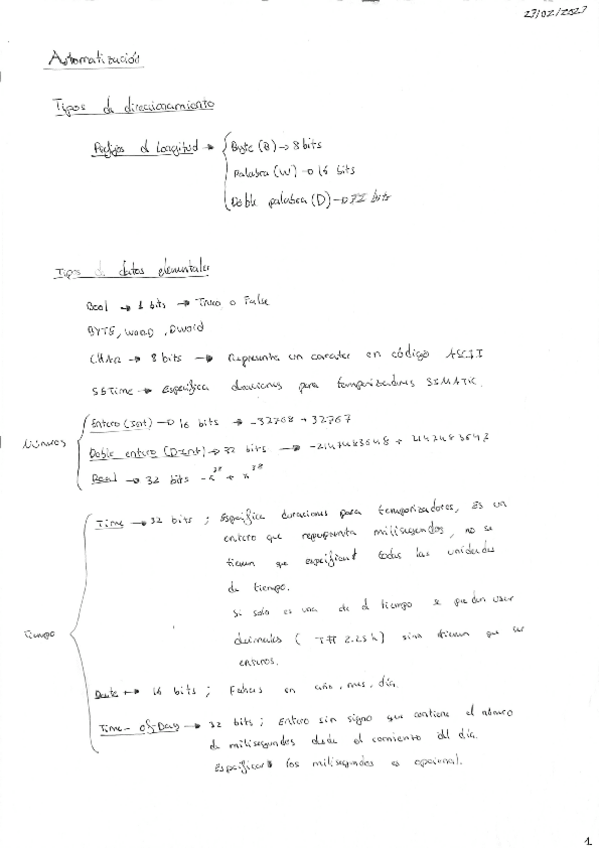 27/02/2023
Automatización
Tipos de direcionamiento
Prefijos de Longitud → Byte (B) → 8 bits
Palabra (W) → 16 bits
Doble palabra (D) → 32 bits
Tipos de datos elementales
Bool → 1 bits → True o False
BYTE, WORD, DWord
CHAR → 8 bits → Representa un caracter en código ASCII
S5Time → Especifica duraciones para temporizadores S5MATIC.
Números
Entero (Sint) → 16 bits → -32768 + 32767
Doble entero (Dint) → 32 bits → -2147483648 + 2147483647
Real → 32 bits
Tiempo
Time → 32 bits ; Especifica duraciones para temporizadores, Es un
entero que representa milisegundos, no se
tienen que especificar todas las unidades
de tiempo.
Si solo es una de el tiempo se pueden usar
decimales ( T# 2.25h ) sino tienen que ser
enteros.
Date → 16 bits ; Fechas en año, mes, día.
Time-of-Day → 32 bits ; Entero sin signo que contiene el número
de milisegundos desde el comiento del día.
Especificar los milisegundos es opcional.
1